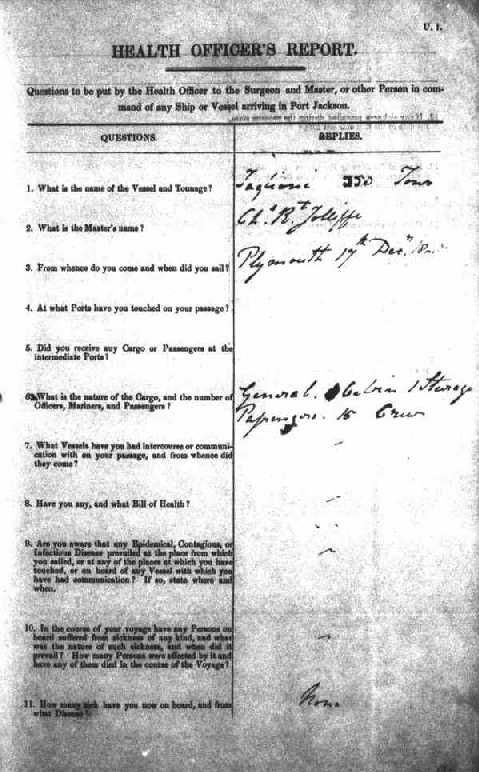 U. 1.
HEALTH OFFICER'S REPORT.
Questions to be put by the Health Officer to the Surgeon and Master, or other Person in com-
mand of any Ship or Vessel arriving in Port Jackson.
QUESTIONS. REPLIES.
1. What is the name of the Vessel and Tonnage? Taglioni 350 Tons
2. What is the Master's name? Chs. Rt. Jolliffe
3. From whence do you come and when did you sail? Plymouth 17th Decr.
4. At what Ports have you touched on your passage?
5. Did you receive any Cargo or Passengers at the
intermediate Ports?
6. What is the nature of the Cargo, and the number of General. Cabin 1 Steerage
Officers, Mariners, and Passengers? Passengers. 15 Crew
7. What Vessels have you had intercourse or communi-
cation with on your passage, and from whence did
they come?
8. Have you any, and what Bill of Health?
9. Are you aware that any Epidemical, Contagious, or
Infectious Disease prevailed at the place from which
you sailed, or at any of the places at which you have
touched, or on board of any Vessel with which you
have had communication? If so, state where and
when.
10. In the course of your voyage have any Persons on
board suffered from sickness of any kind, and what
was the nature of such sickness, and when did it
prevail? How many Persons were affected by it and
have any of them died in the course of the Voyage?
11. How many sick have you now on board, and from None
what Disease?